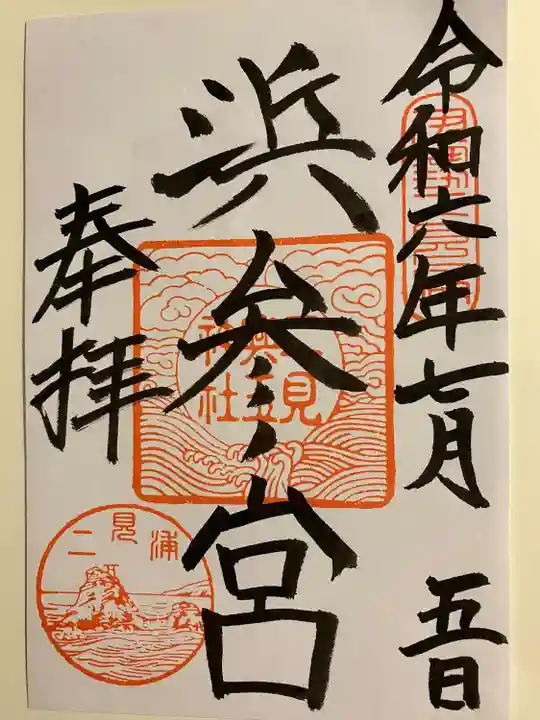 令和六年七月五日
浜参宮
奉拝
二見興玉神社
二見浦